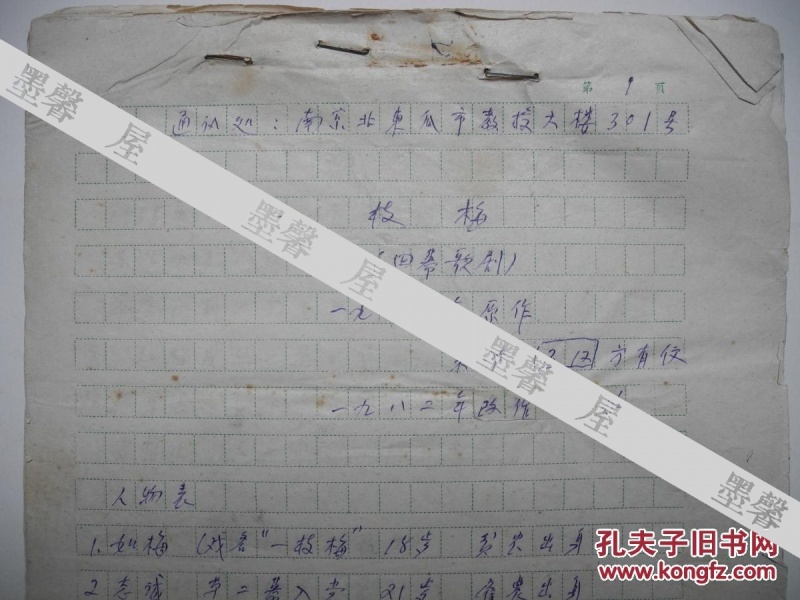 第 9 页
通讯处：南京北东瓜市教授大楼301号
枝 梅
（四幕歌剧）
一九 年原作
方有仪
一九八二年改作
人物表
1.如梅 （戏名“一枝梅” 18岁 贫农出身
2.志诚 第二幕入党 21岁 雇农出身
墨馨 屋
墨馨 屋
墨馨 屋
孔夫子旧书网
www.kongfz.com